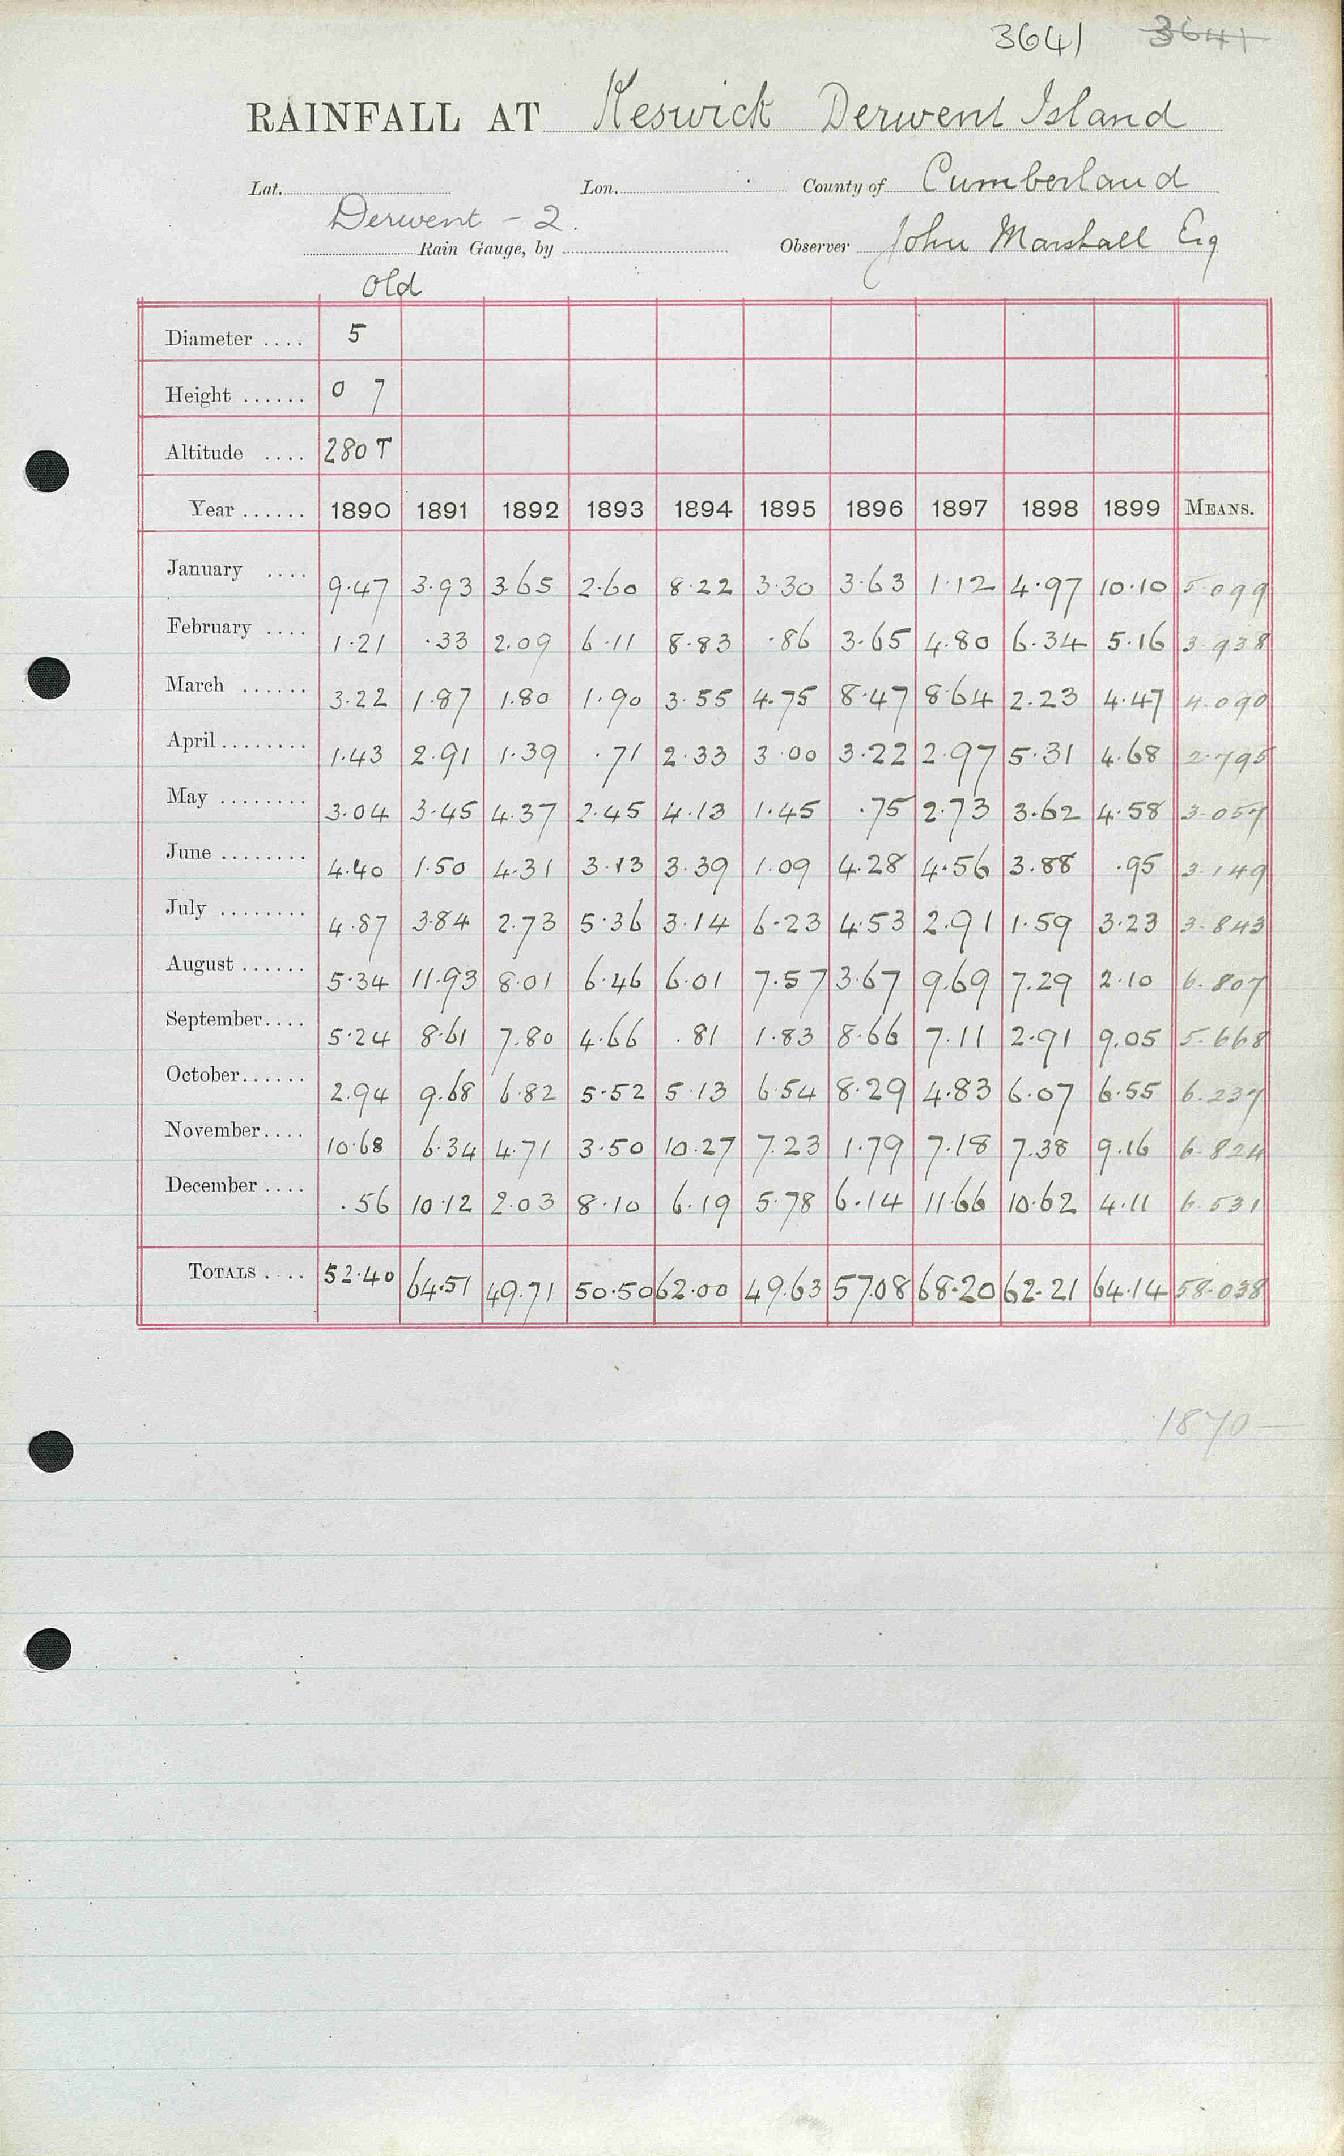 3641 3641
RAINFALL AT Keswick Derwent Island
Lat. Lon. County of Cumberland
Derwent - 2.
Rain Gauge, by Observer John Marshall Esq
Old
Diameter .... 5
Height ...... 0 7
Altitude .... 280 T
Year ...... 1890 1891 1892 1893 1894 1895 1896 1897 1898 1899 MEANS.
January .... 9.47 3.93 3.65 2.60 8.22 3.30 3.63 1.12 4.97 10.10 5.099
February .... 1.21 .33 2.09 6.11 8.83 .86 3.65 4.80 6.34 5.16 3.938
March ...... 3.22 1.87 1.80 1.90 3.55 4.75 8.47 8.64 2.23 4.47 4.090
April ........ 1.43 2.91 1.39 .71 2.33 3.00 3.22 2.97 5.31 4.68 2.795
May ........ 3.04 3.45 4.37 2.45 4.13 1.45 .75 2.73 3.62 4.58 3.057
June ........ 4.40 1.50 4.31 3.13 3.39 1.09 4.28 4.56 3.88 .95 3.149
July ........ 4.87 3.84 2.73 5.36 3.14 6.23 4.53 2.91 1.59 3.23 3.843
August ...... 5.34 11.93 8.01 6.46 6.01 7.57 3.67 9.69 7.29 2.10 6.807
September.... 5.24 8.61 7.80 4.66 .81 1.83 8.66 7.11 2.91 9.05 5.668
October...... 2.94 9.68 6.82 5.52 5.13 6.54 8.29 4.83 6.07 6.55 6.237
November.... 10.68 6.34 4.71 3.50 10.27 7.23 1.79 7.18 7.38 9.16 6.824
December .... .56 10.12 2.03 8.10 6.19 5.78 6.14 11.66 10.62 4.11 6.531
TOTALS .... 52.40 64.51 49.71 50.50 62.00 49.63 57.08 68.20 62.21 64.14 58.038
1870 —